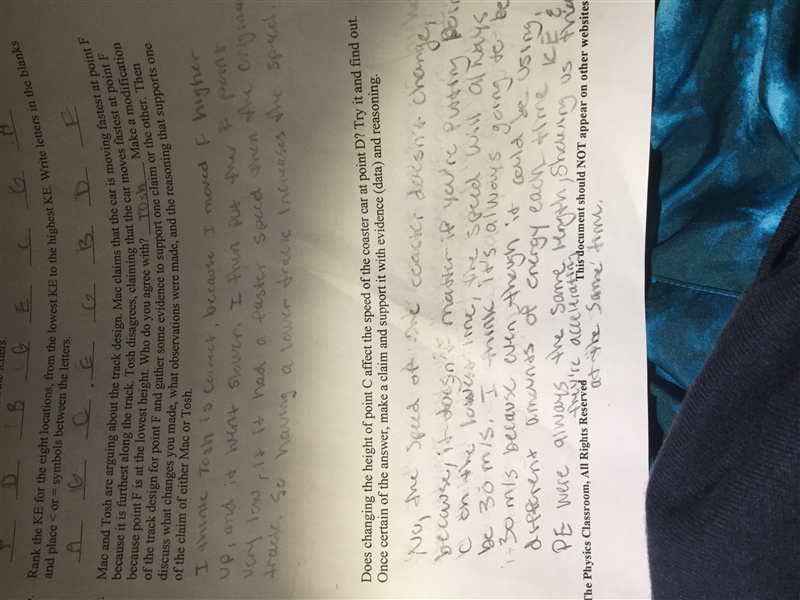 D B G E C G A
Rank the KE for the eight locations, from the lowest KE to the highest KE. Write letters in the blanks
and place < or = symbols between the letters.
A G C . E G B D F
Mac and Tosh are arguing about the track design. Mac claims that the car is moving fastest at point F
because it is furthest along the track. Tosh disagrees, claiming that the car moves fastest at point F
because point F is at the lowest height. Who do you agree with? Tosh Make a modification
of the track design for point F and gather some evidence to support one claim or the other. Then
discuss what changes you made, what observations were made, and the reasoning that supports one
of the claim of either Mac or Tosh.
I think Tosh is correct, because I moved F higher
up and it went slower. I then put the F point
very low, it had a faster speed then the original
track. So having a lower track increases the speed.
Does changing the height of point C affect the speed of the coaster car at point D? Try it and find out.
Once certain of the answer, make a claim and support it with evidence (data) and reasoning.
No, the speed of the coaster doesn't change,
because, it doesn't matter if you're putting point
C on the lowest line, the speed will always
be 30 m/s. I think it's always going to be
30 m/s because even though it could be using,
different amounts of energy each time KE &
PE were always the same length, showing us
they're accelerating
at the same time.
The Physics Classroom, All Rights Reserved
This document should NOT appear on other websites